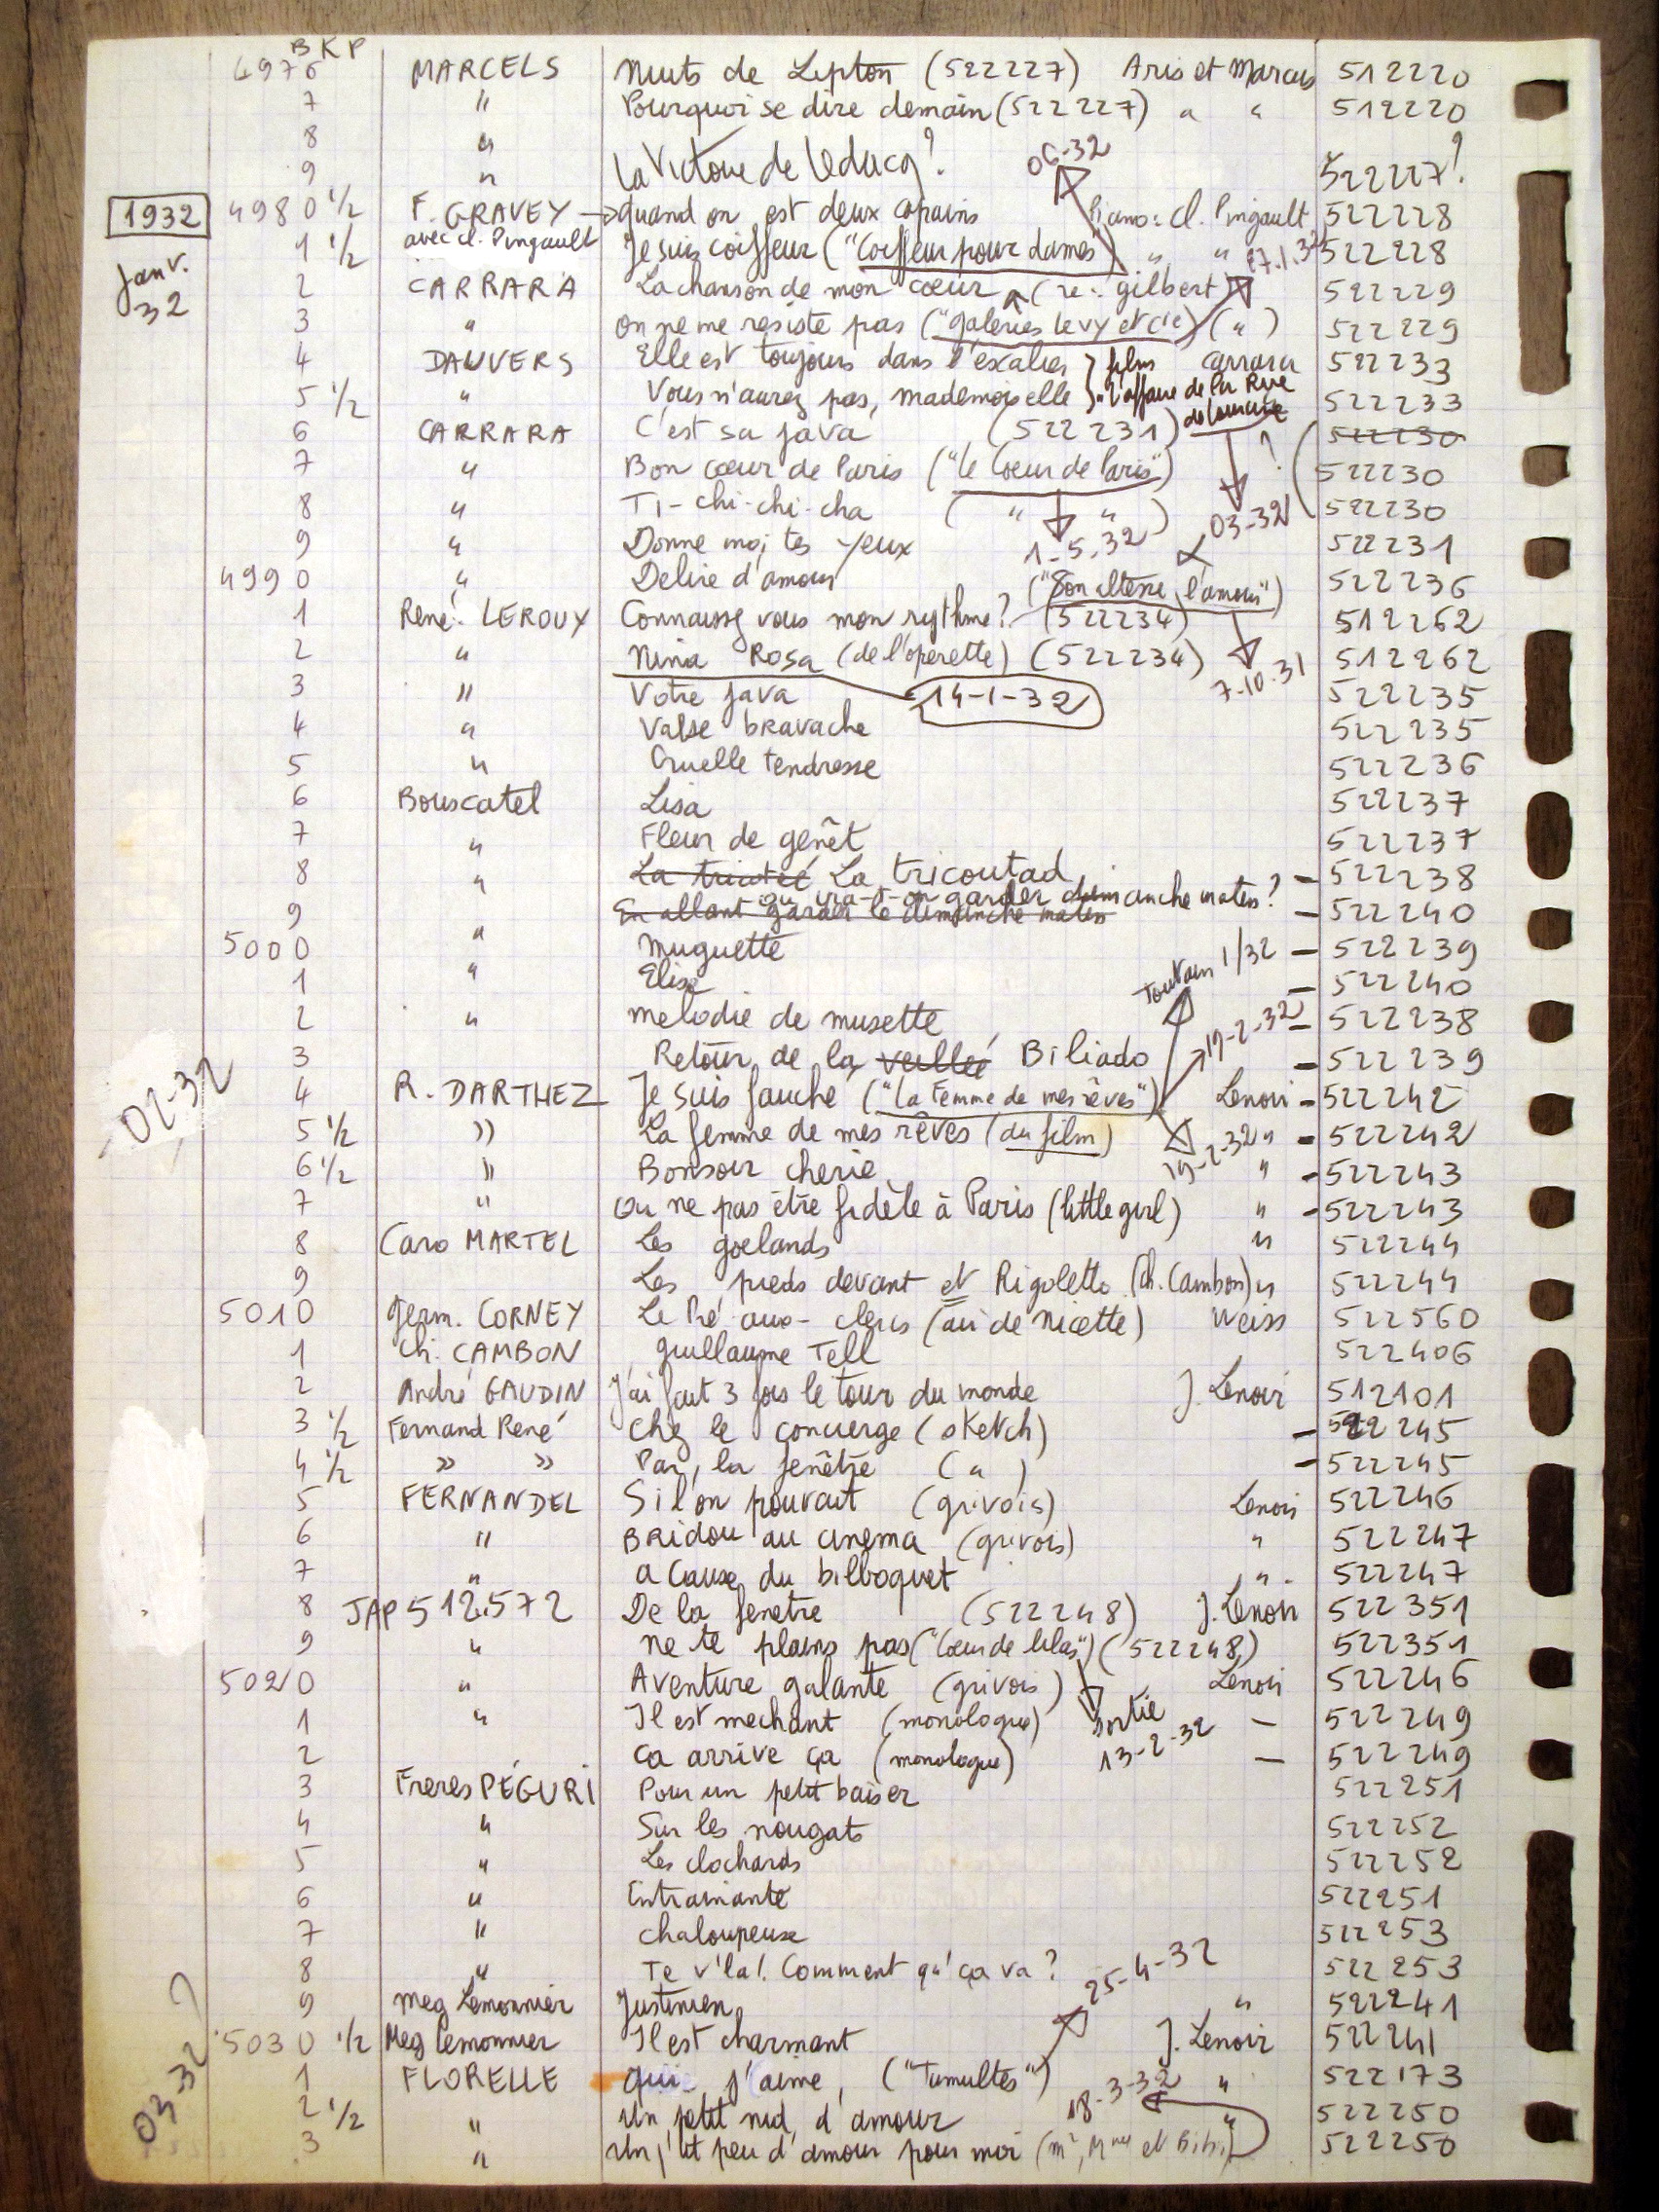 BKP
4976 MARCELS Nuits de Lipton (522227) Aris et Marcus 512220
7 " Pourquoi se dire demain (522227) " " 512220
8 "
9 " La Victoire de Leducq? 06-32 522227?
1932 4980 1/2 F. GRAVEY → quand on est deux copains Piano: Cl. Pingault 522228
Janv. 32 1 1/2 avec cl. Pingault Je suis coiffeur ("Coiffeur pour dames") " " 522228
2 CARRARA La chanson de mon coeur (re: gilbert) 522229
3 " On ne me resiste pas ("galeries levy et cie") (") 522229
4 DANVERS Elle est toujours dans l'escalier } film Carrara 522233
5 1/2 " Vous n'aurez pas, mademoiselle } "L'affaire de la Rue de Lourcine 522233
6 CARRARA C'est sa java (522231) ? 522230
7 " Bon coeur de Paris ("le Coeur de Paris") 522230
8 " Ti-chi-chi-cha ( " " ) 03-32 522230
9 " Donne moi tes yeux 1-5-32 522231
4990 " Delire d'amour ("Son altesse l'amour") 522236
1 René LEROUX Connaissez vous mon rythme? (522234) 512262
2 " Nina Rosa (de l'operette) (522234) 7-10-31 512262
3 " Votre java 14-1-32 522235
4 " Valse bravache 522235
5 " Cruelle tendresse 522236
6 Bouscatel Lisa 522237
7 " Fleur de genêt 522237
8 " La tricotée La tricoutad - 522238
ou ira-t-on garder dimanche matin?
9 En allant garder le dimanche matin - 522240
5000 " Muguette Toutain 1/32 - 522239
1 " Elise - 522240
2 " melodie de musette 19-2-32 - 522238
3 Retour de la veillée Biliado - 522239
02-32 4 R. DARTHEZ Je suis fauché ("la Femme de mes rêves") Lenoir - 522242
5 1/2 " La femme de mes rêves (du film) " - 522242
6 1/2 " Bonsoir cherie 19-2-32 " - 522243
7 " Ou ne pas être fidèle à Paris (little girl) " - 522243
8 Caro MARTEL Les goelands " 522244
9 Les pieds devant et Rigoletto (Ch. Cambon) " 522244
5010 Germ. CORNEY Le Pré aux-clercs (air de nicette) Weiss 522560
1 Ch. CAMBON Guillaume Tell 522406
2 André GAUDIN J'ai fait 3 fois le tour du monde J. Lenoir 512101
3 1/2 Fernand René Chez le concierge (sketch) - 522245
4 1/2 " " Par la fenêtre ( " ) - 522245
5 FERNANDEL Si l'on pouvait (grivois) Lenoir 522246
6 " Bridou au cinema (grivois) " 522247
7 " a Cause du bilboquet " 522247
8 JAP 512.572 De la fenetre (522248) J. Lenoir 522351
9 " ne te plains pas ("Coeur de lilas") (522248) 522351
5020 " Aventure galante (grivois) Lenoir 522246
1 " Il est mechant (monologue) sortie - 522249
2 ca arrive ça (monologue) 13-2-32 - 522249
3 Freres PÉGURI Pour un petit baiser 522251
4 " Sur les nougats 522252
5 " Les clochards 522252
6 " Entrainante 522251
7 " Chaloupeuse 522253
8 " Te v'la! Comment qu'ça va? 25-4-32 522253
9 Meg Lemonnier Justinien " 522241
03-32? 5030 1/2 Meg Lemonnier Il est charmant J. Lenoir 522241
1 FLORELLE qui j'aime, ("Tumultes") " 522173
2 1/2 " Un petit nid d'amour 18-3-32 " 522250
3 " Un p'tit peu d'amour pour moi (Mr, Mme et Bibi) 522250